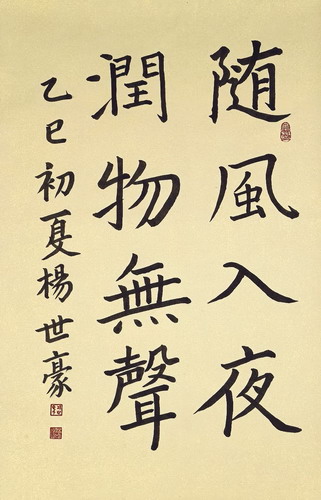 随風入夜
潤物無聲
乙巳初夏楊世豪